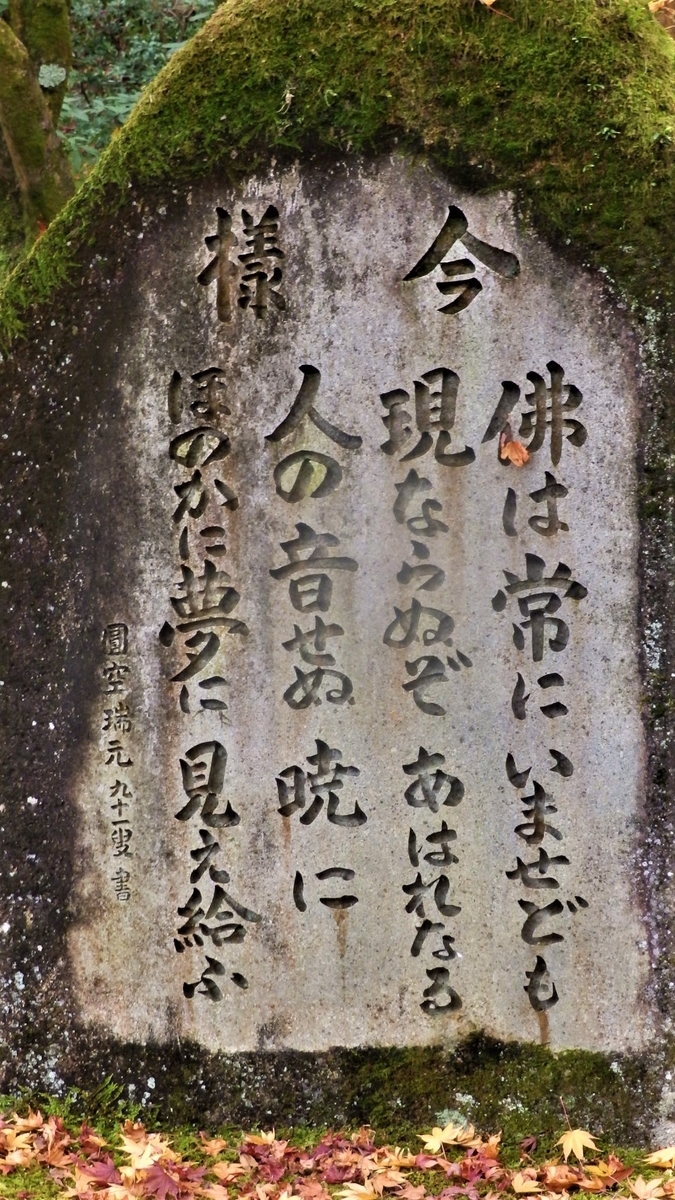 今様
佛は常にいませども
現ならぬぞあはれなる
人の音せぬ暁に
ほのかに夢に見え給ふ
圓空瑞元 九十一叟 書